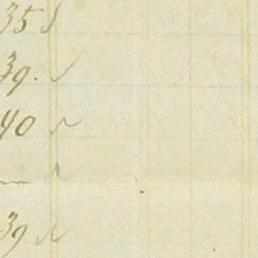 35 ✓
39. ✓
40 ✓
— ✓
39 ✓